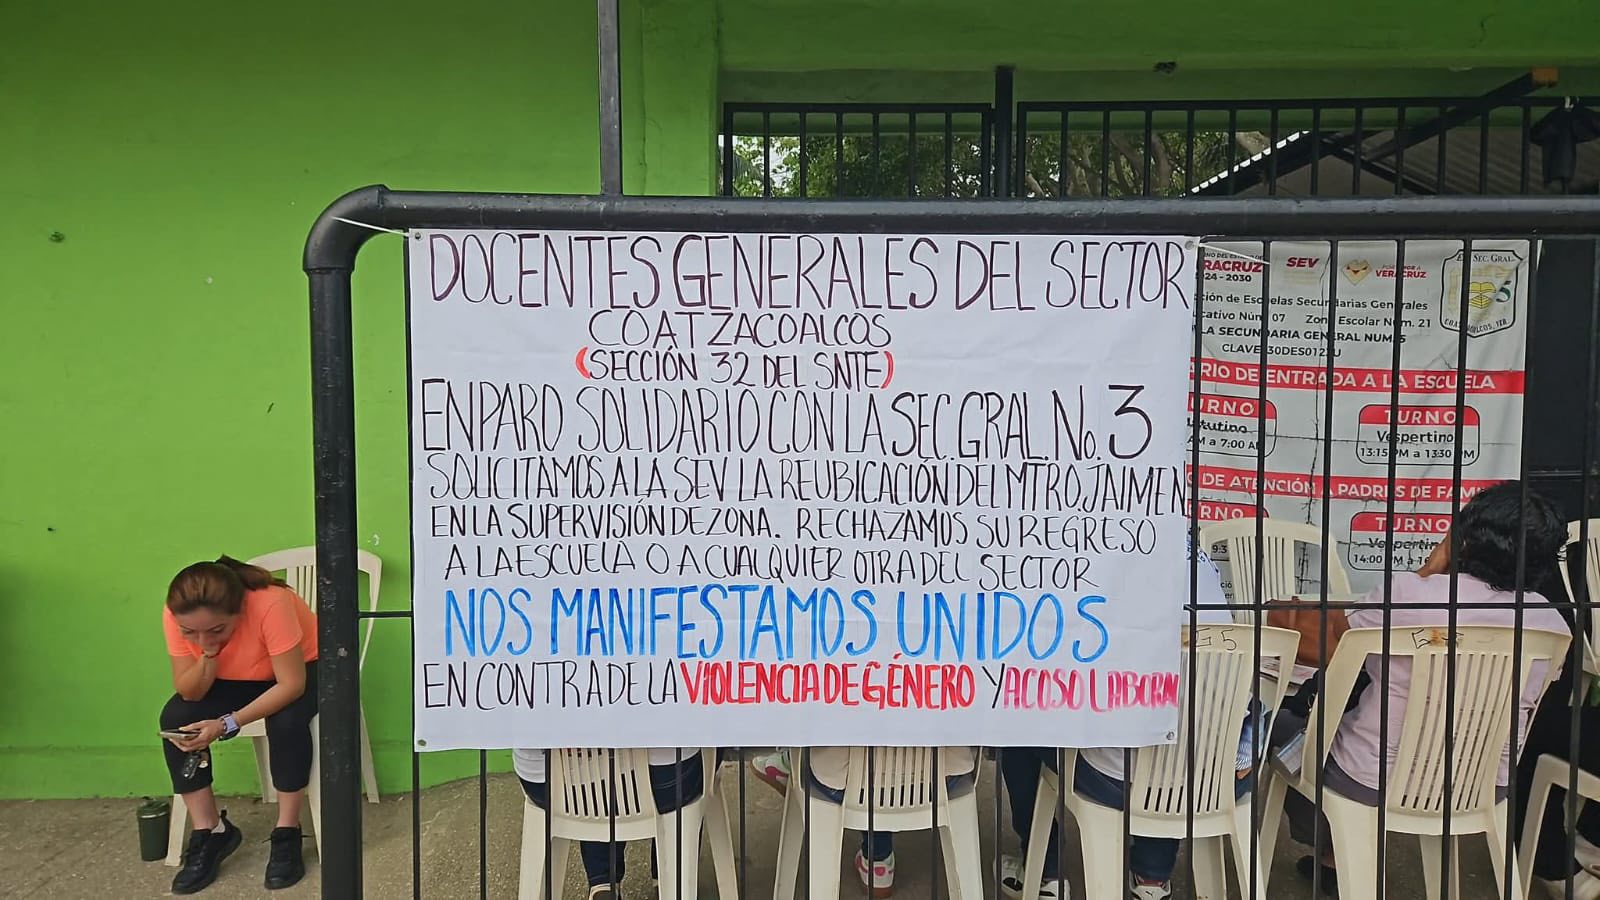 DOCENTES GENERALES DEL SECTOR
COATZACOALCOS
(SECCIÓN 32 DEL SNTE)
EN PARO SOLIDARIO CON LA SEC. GRAL. No. 3
SOLICITAMOS A LA SEV LA REUBICACIÓN DEL MTRO. JAIME N
EN LA SUPERVISIÓN DE ZONA. RECHAZAMOS SU REGRESO
A LA ESCUELA O A CUALQUIER OTRA DEL SECTOR
NOS MANIFESTAMOS UNIDOS
EN CONTRA DE LA VIOLENCIA DE GÉNERO Y ACOSO LABORAL
SEV
POR AMOR A
VERACRUZ
2024 - 2030
ESC. SEC. GRAL.
5
de Escuelas Secundarias Generales
Núm. 07 Zona Escolar Núm. 21
SECUNDARIA GENERAL NUM. 5
CLAVE
DE ENTRADA A LA ESCUELA
TURNO
Vespertino
13:15 PM a 13:30 PM
AM a 7:00 AM
DE ATENCIÓN A PADRES DE
TURNO
Vespertino
14:00 PM